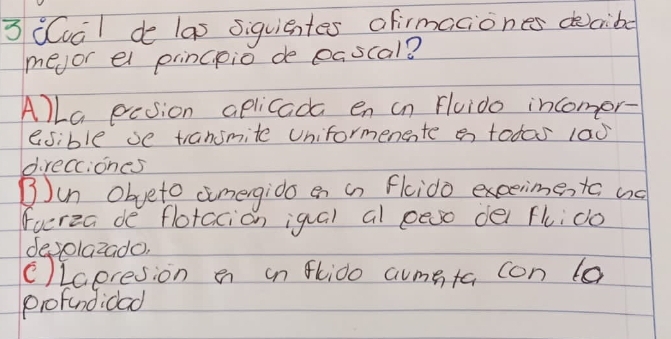 3 ¿Cuál de las siguientes afirmaciónes decribe
mejor el principio de pascal?
A) La presion aplicada en un Fluido incompr-
esible se transmite uniformenente en todas las
direcciónes
B) Un objeto sumergido en un fluido experimenta una
fuerza de flotación igual al peso del fluido
desplazado.
C) La presión en un fluido aumenta con la
profundidad